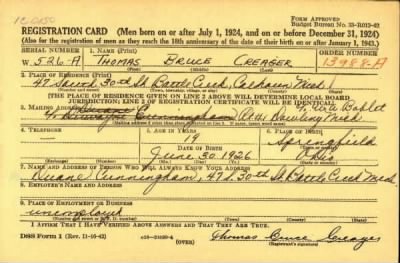 FORM APPROVED
Budget Bureau No. 33-R013-42
REGISTRATION CARD (Men born on or after July 1, 1924, and on or before December 31, 1924)
(Also for the registration of men as they reach the 18th anniversary of the date of their birth on or after January 1, 1943.)
SERIAL NUMBER
1. NAME (Print)
ORDER NUMBER
W 526-A
THOMAS BRUCE CREAGER
13988-A
2. PLACE OF RESIDENCE (Print)
47 South 30th St Battle Creek, Calhoun Mich
[THE PLACE OF RESIDENCE GIVEN ON LINE 2 ABOVE WILL DETERMINE LOCAL BOARD
JURISDICTION; LINE 2 OF REGISTRATION CERTIFICATE WILL BE IDENTICAL.]
3. MAILING ADDRESS
Cunningham
Mich
4. TELEPHONE
5. AGE IN YEARS
6. PLACE OF BIRTH
19
Springfield
DATE OF BIRTH
June 30 1926
Ohio
7. NAME AND ADDRESS OF PERSON WHO WILL ALWAYS KNOW YOUR ADDRESS
Duane Cunningham, 47 S. 30th St Battle Creek Mich.
8. EMPLOYER'S NAME AND ADDRESS
9. PLACE OF EMPLOYMENT OR BUSINESS
unemployed
I AFFIRM THAT I HAVE VERIFIED ABOVE ANSWERS AND THAT THEY ARE TRUE.
DSS Form 1 (Rev. 11-16-42)
(OVER)
Thomas Bruce Creager
(Registrant's signature)